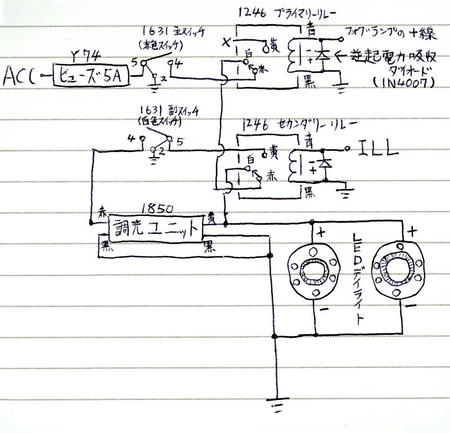 1246 プライマリーリレー
1631 主スイッチ
(赤色スイッチ)
Y74
ACC
ヒューズ5A
5
4
2
X
白
黄
赤
青
黒
+
フォグランプの+線
逆起電力吸収
ダイオード
(1N4007)
1631 副スイッチ
(白色スイッチ)
4
5
2
1246 セカンダリーリレー
白
黄
赤
青
黒
+
ILL
1850
調光ユニット
赤
黒
黄
黒
+
+
LEDデイライト
-
-